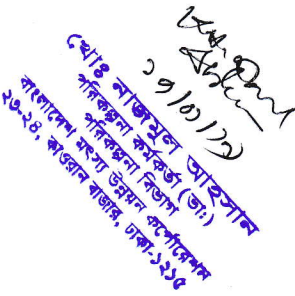 ১৭/০১/২১
মোঃ নাজমুল আহসান
পরিকল্পনা কর্মকর্তা (ভাঃ)
পরিকল্পনা বিভাগ
বাংলাদেশ মৎস্য উন্নয়ন কর্পোরেশন
২৩-২৪, কাওরান বাজার, ঢাকা-১২১৫